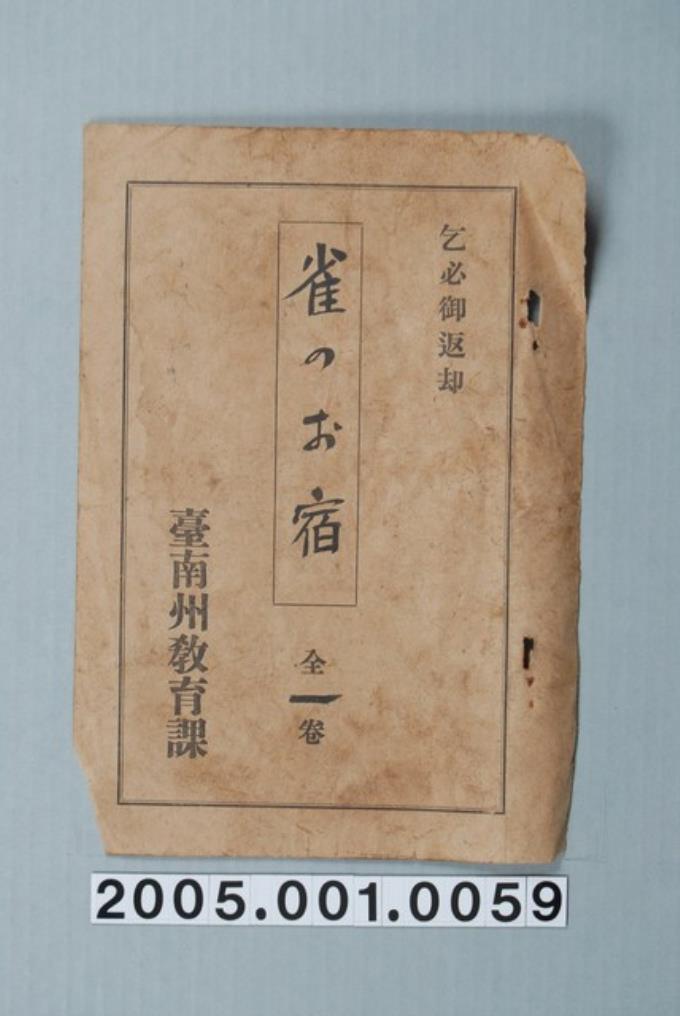 乞必御返却
雀のお宿
全一卷
臺南州教育課
2005.001.0059